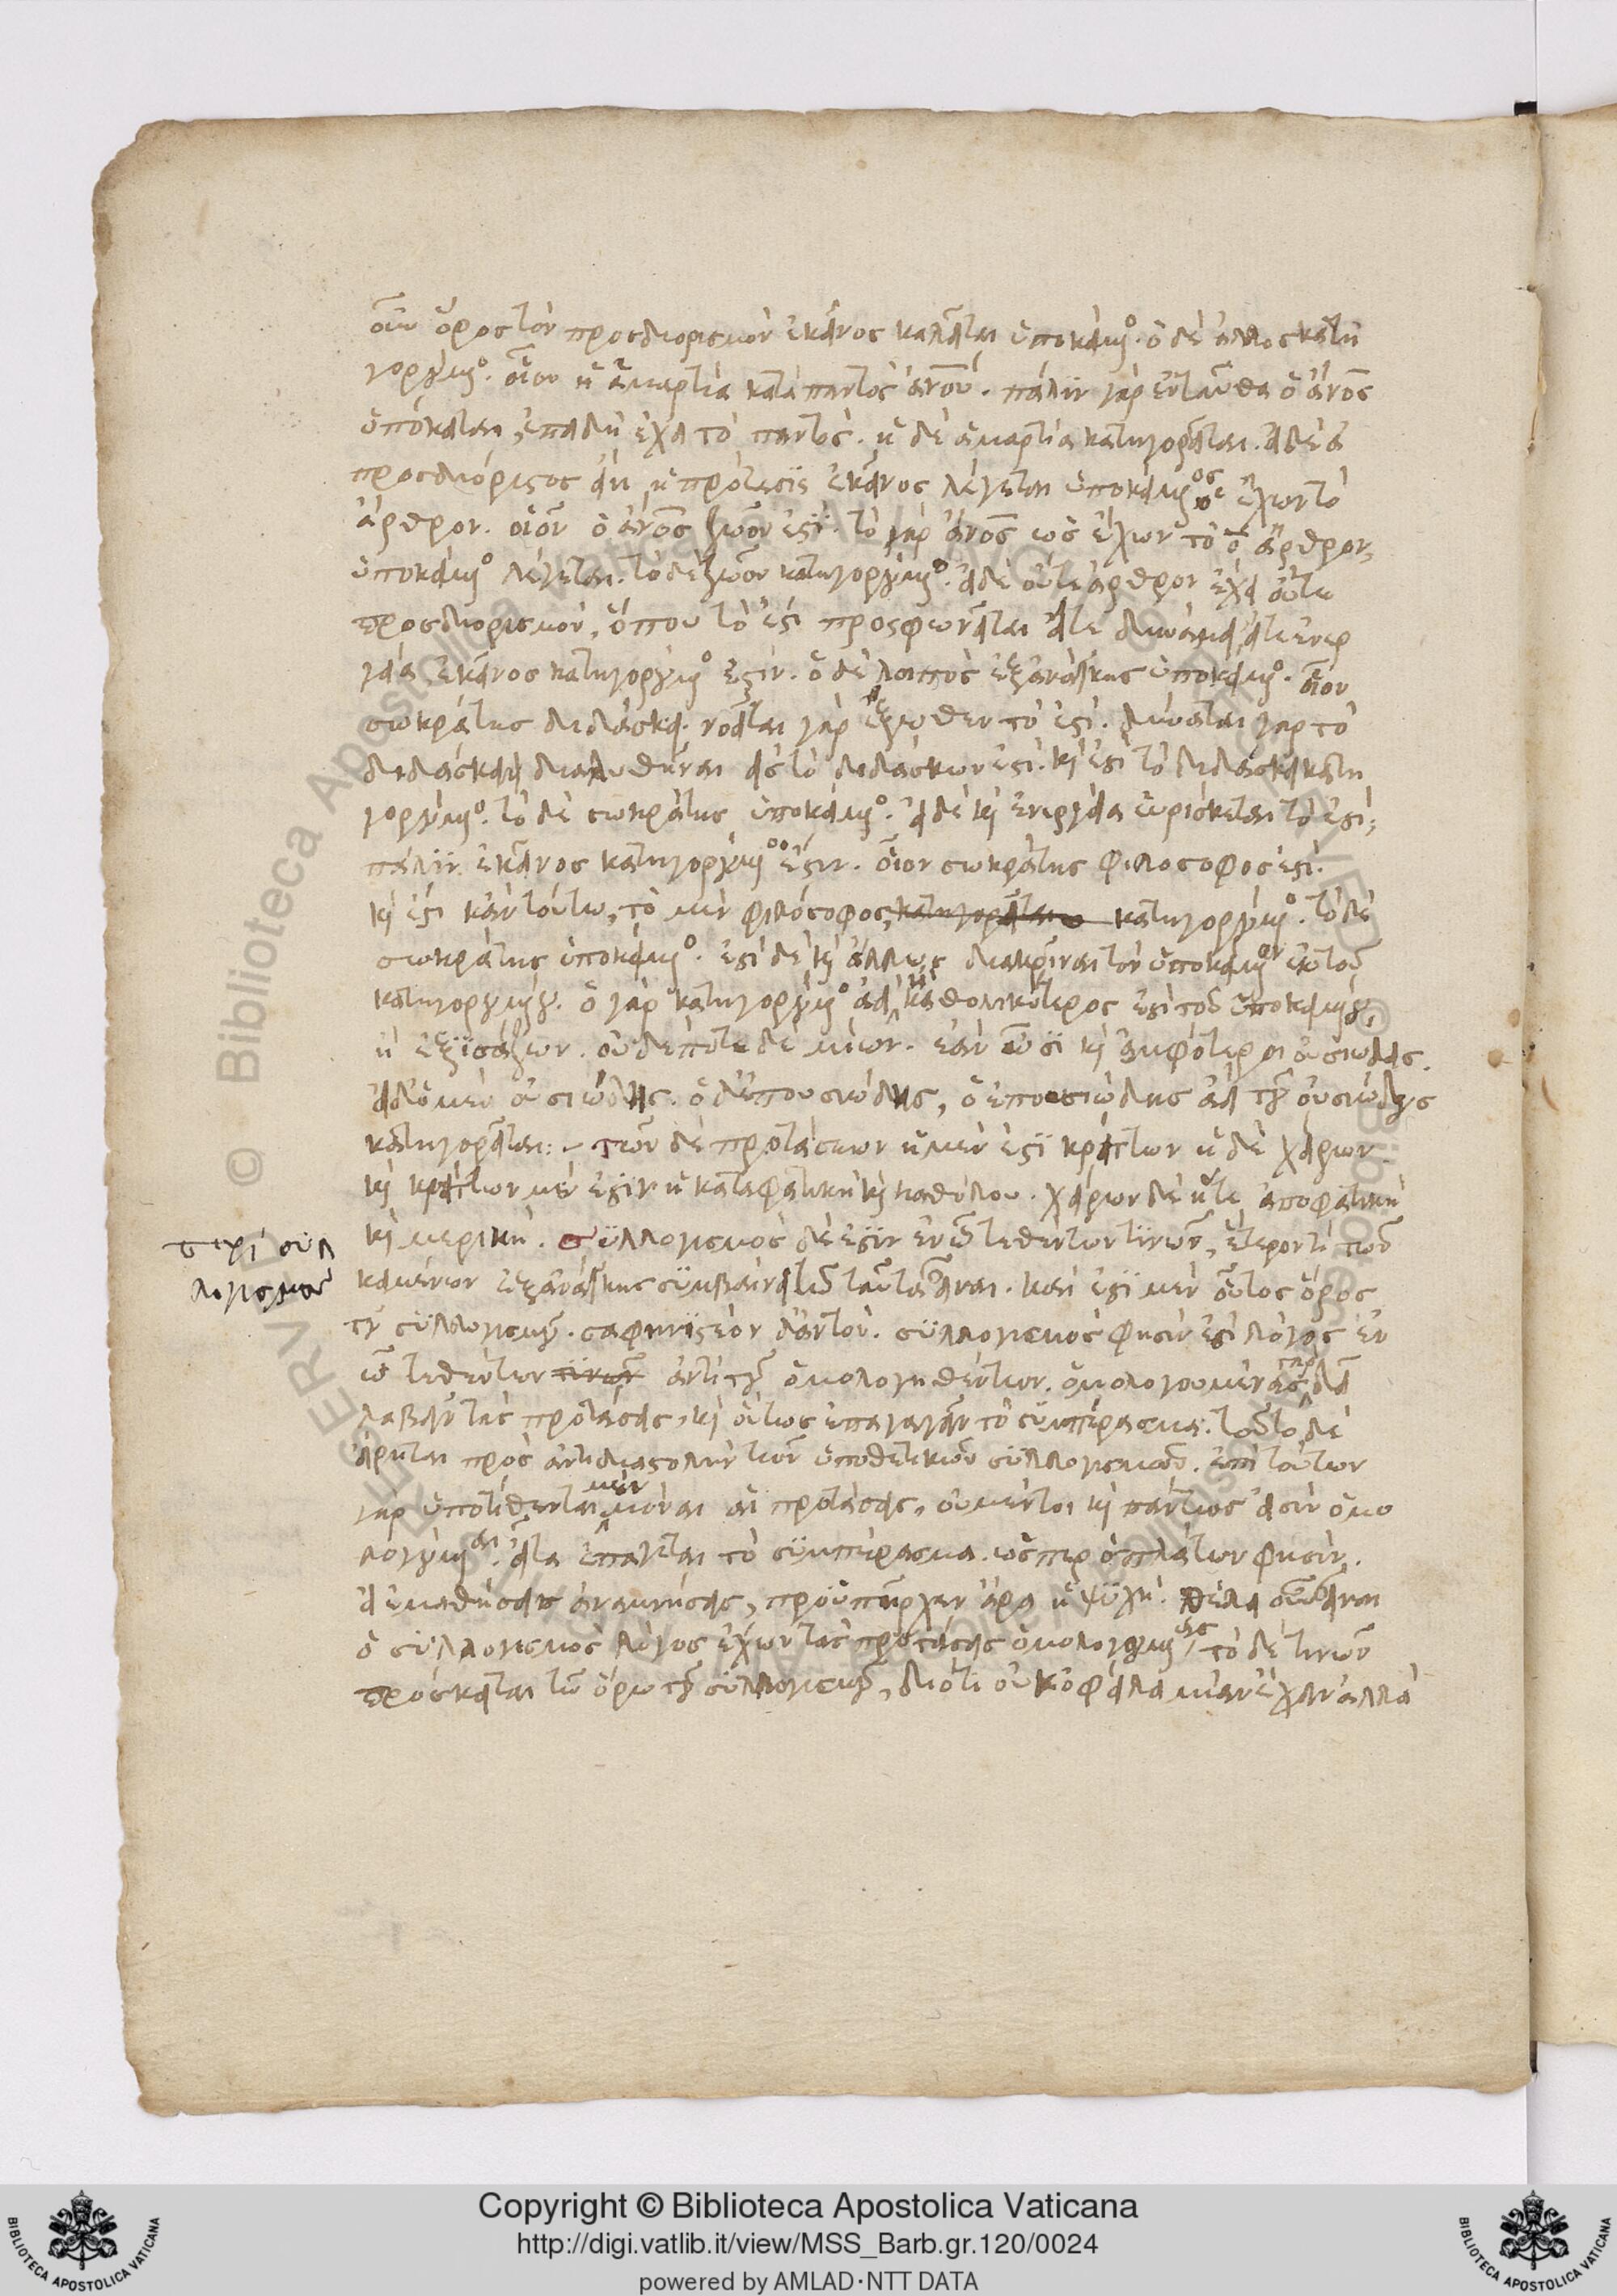 οὖν ὅρος τὸν προσδιορισμὸν ἐκεῖνος καλεῖται ὑποκείμ(εν)ο(ς). ὁ δὲ ἄλλος κατη
γορούμ(εν)ο(ς). οἷον ἡ ἁμαρτία κατὰ παντὸς ἀνου. πάλιν γὰρ ἐνταῦθα ὁ ἄνος
ὑπόκειται, ἐπειδὴ ἔχει τὸ παντός. ἡ δὲ ἁμαρτία κατηγορεῖται. εἰ δὲ ἀ
προσδιόριστος εἴη ἡ πρότασις ἐκεῖνος λέγεται ὑποκείμ(εν)ος ὁ ἔχων τὸ
ἄρθρον. οἷον ὁ ἄνος ζῶον ἐστί. τὸ γὰρ ἄνος ὡς ἔχων τὸ ὁ ἄρθρον,
ὑποκείμ(εν)ο(ς) λέγεται. τὸ δὲ ζῶον κατηγορούμ(εν)ο(ς). εἰ δὲ οὔτε ἄρθρον ἔχει οὔτε
προσδιορισμόν, ὅπου τὸ ἐστὶ προσφωνεῖται εἴτε δυνάμει εἴτε ἐνερ
γεία ἐκεῖνος κατηγορούμ(εν)ο(ς) ἐστίν. ὁ δὲ λοιπὸς ἐξ ἀνάγκης ὑποκείμ(εν)ο(ς). οἷον
σωκράτης διδάσκει. νοεῖται γὰρ ἔξωθεν τὸ ἐστί. δύναται γὰρ τὸ
διδάσκειν διαλυθῆναι εἰς τὸ διδάσκων ἐστί. κ(αὶ) ἐστὶ τὸ διδάσκει κατη
γορούμ(εν)ο(ς). τὸ δὲ σωκράτης ὑποκείμ(εν)ο(ς). εἰ δὲ κ(αὶ) ἐνεργεία εὑρίσκεται τὸ ἐστί,
πάλιν ἐκεῖνος κατηγορούμ(εν)ος ἐστιν. οἷον σωκράτης φιλόσοφος ἐστί.
κ(αὶ) ἐστὶ κἀν τούτω, τὸ μὲν φιλόσοφος, κατηγορεῖται κατηγορούμ(εν)ο(ς). τὸ δὲ
σωκράτης ὑποκείμ(εν)ο(ς). ἐστὶ δὲ κ(αὶ) ἄλλως διακρῖναι τὸν ὑποκείμ(εν)ον ἐκ τοῦ
κατηγορουμ(έν)ου. ὁ γὰρ κατηγορούμ(εν)ο(ς) ἀεὶ ἢ καθολικώτερος ἐστὶ τοῦ ὑποκειμ(έν)ου,
ἢ ἐξισάζων. οὐδέποτε δὲ μείων. ἐὰν ὦσι κ(αὶ) ἀμφότεροι οὐσιώδεις.
εἰ δ' ὁ μὲν οὐσιώδης. ὁ δ' ἐπουσιώδης, ὁ ἐπουσιώδης ἀεὶ τοῦ οὐσιώδους
κατηγορεῖται: – τῶν δὲ προτάσεων ἡ μὲν ἐστὶ κρείττων ἡ δὲ χείρων.
κ(αὶ) κρείττων μέν ἐστιν ἡ καταφατικὴ κ(αὶ) καθόλου. χείρων δὲ ἥτε ἀποφατικὴ
κ(αὶ) μερική. συλλογισμὸς δέ ἐστιν ἐν ᾧ τεθέντων τινῶν, ἕτερόν τι τῶν
περὶ συλ
λογισμοῦ
κειμένων ἐξ ἀνάγκης συμβαίνει τῶ ταῦτα εἶναι. καὶ ἐστὶ μὲν οὗτος ὅρος
τοῦ συλλογισμοῦ. σαφηνιστέον δ' αὐτόν. συλλογισμὸς φησὶν ἐστὶ λόγος ἐν
ᾧ τεθέντων τινῶν ἀντὶ τοῦ ὁμολογηθέντων. ὁμολογουμένας γὰρ δεῖ
λαβεῖν τὰς προτάσεις, κ(αὶ) οὕτως ἐπαγαγεῖν τὸ συμπέρασμα. τοῦτο δὲ
εἴρηται πρὸς ἀντιδιαστολὴν τῶν ὑποθετικῶν συλλογισμῶν. ἐπὶ τούτων
γὰρ ὑποτίθενται μὲν μόναι αἱ προτάσεις, οὐ μέντοι κ(αὶ) πάντως εἰσὶν ὁμο
λογούμ(εν)αι. εἶτα ἐπάγεται τὸ συμπέρασμα. ὥσπερ ὁ πλάτων φησίν.
εἰ αἱ μαθήσεις ἀναμνήσεις, προϋπῆρχεν ἄρα ἡ ψυχή. θέλει οὖν εἶναι
ὁ συλλογισμὸς λόγος ἔχων τὰς προτάσεις ὁμολογουμ(έν)ας, τὸ δὲ τινῶν
πρόσκειται τῶ ὅρω τοῦ συλλογισμοῦ, διότι οὐκ ὀφείλει μίαν ἔχειν ἀλλὰ
Copyright © Biblioteca Apostolica Vaticana
http://digi.vatlib.it/view/MSS_Barb.gr.120/0024
powered by AMLAD·NTT DATA